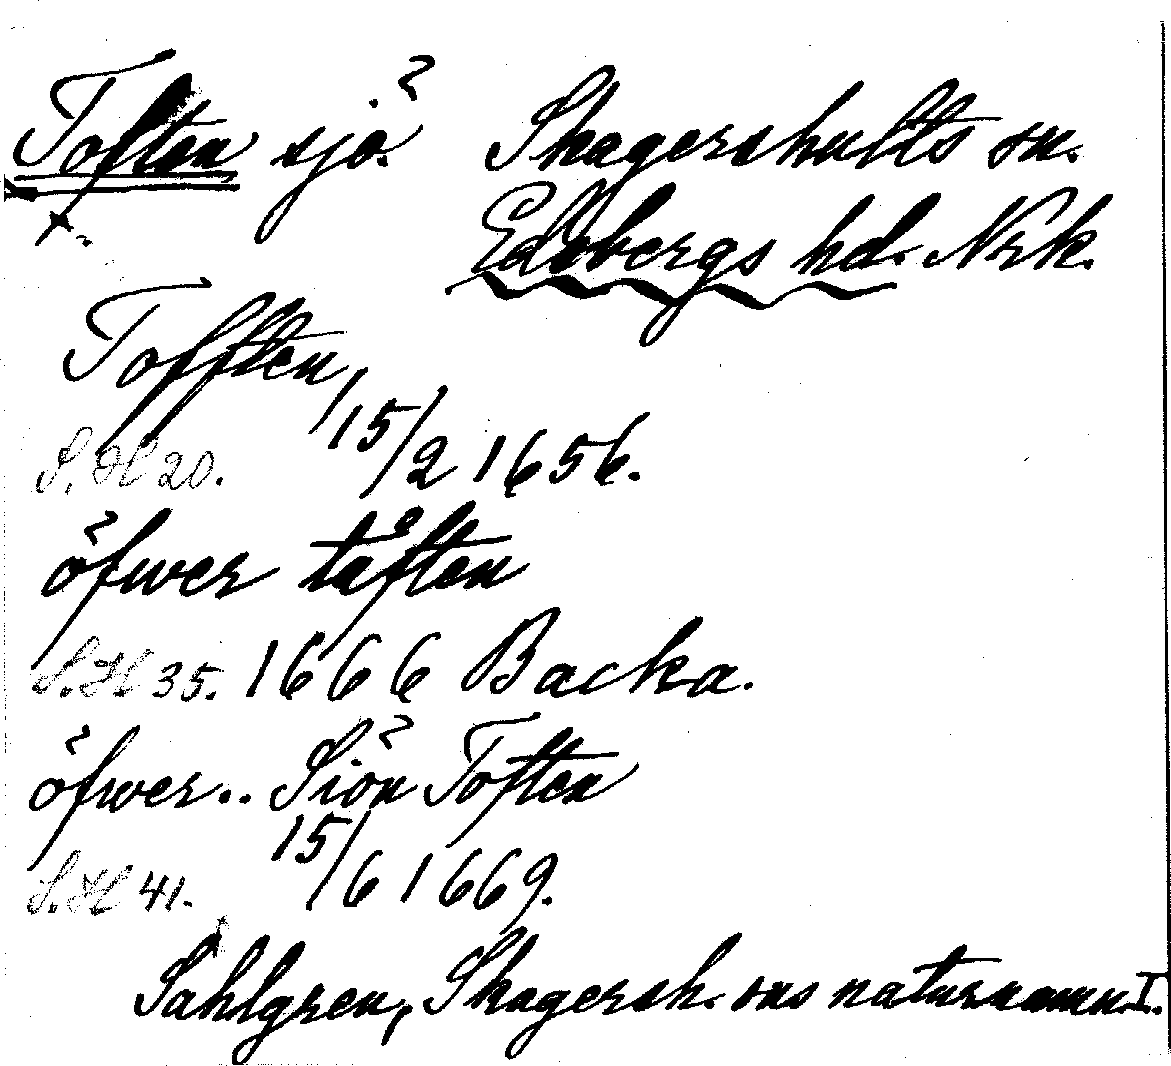 Toften sjö. Skagershults sn.
Edsbergs hd. Nrk.
Tofften, 15/2 1656.
S. H 20.
öfwer tåften
S. H 35. 1666 Backa.
öfwer.. Siön Toften
S. H 41. 15/6 1669.
Sahlgren, Skagersh. sns naturnamn I.